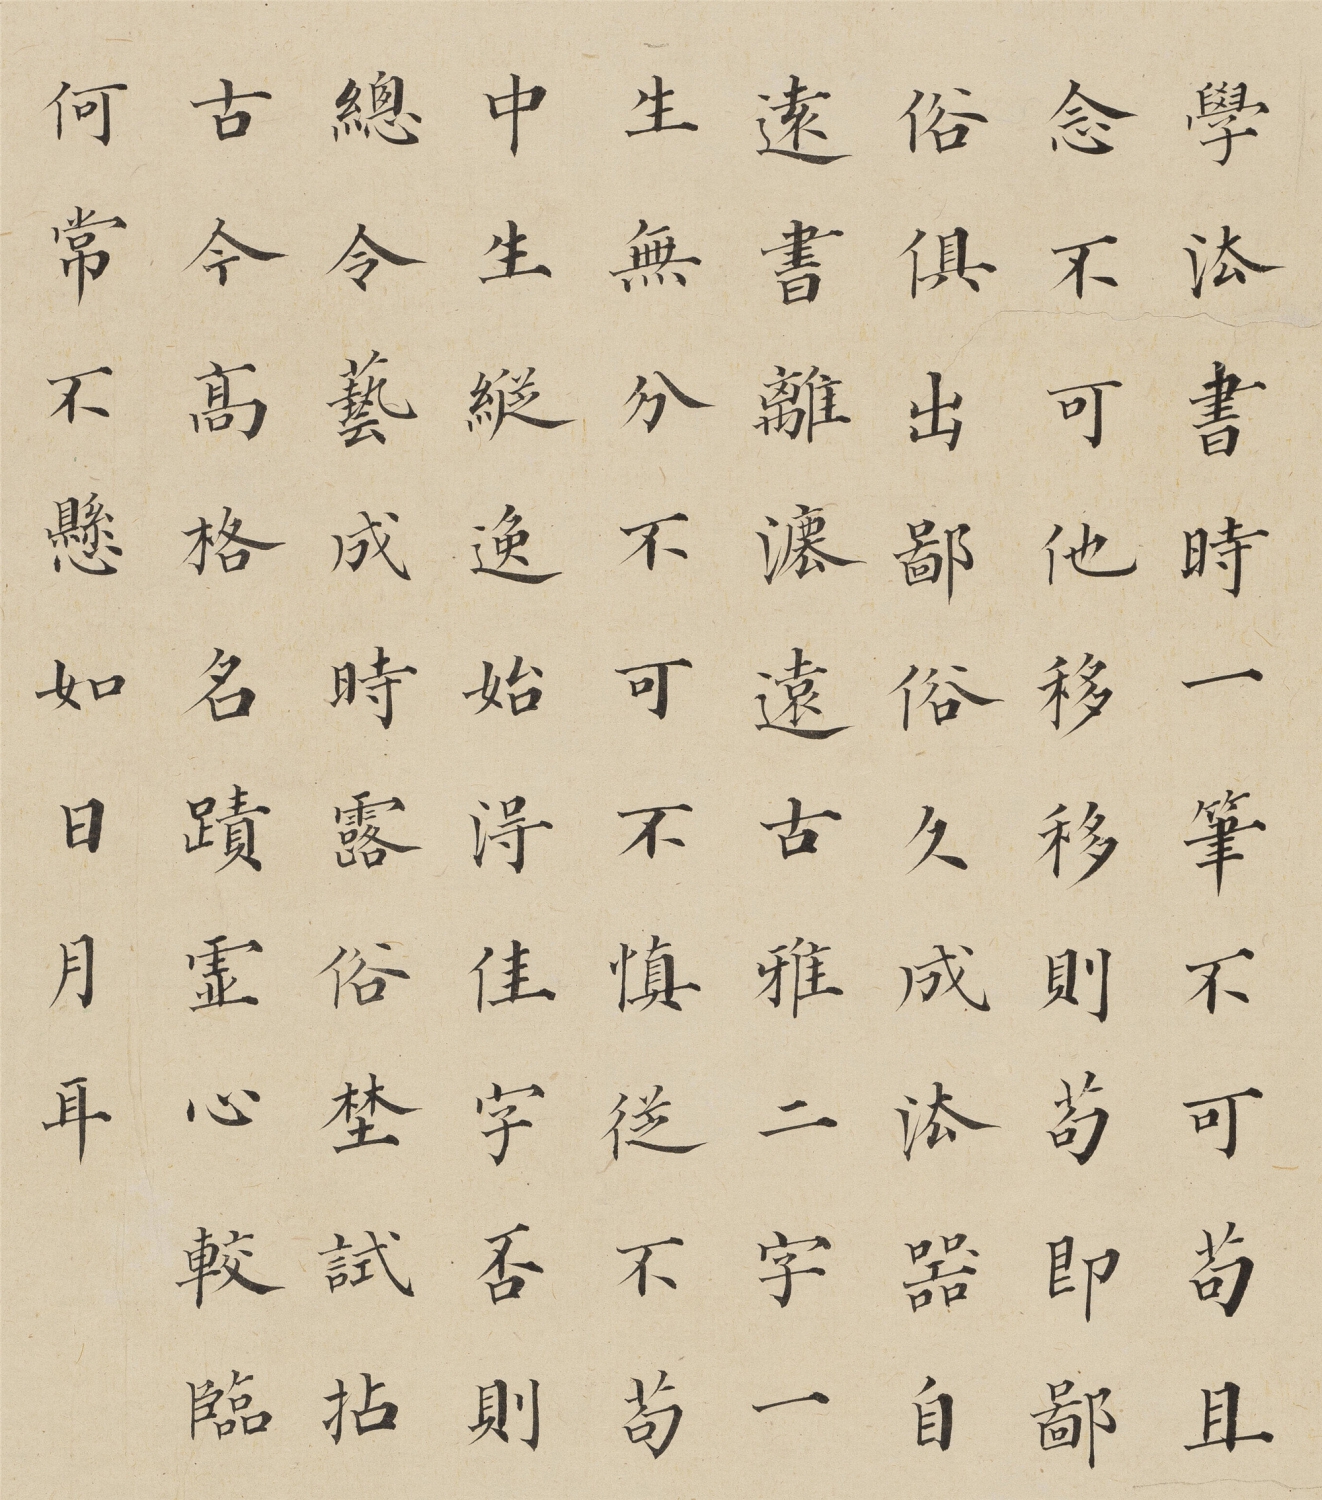 學法書時一筆不可苟且
念不可他移移則苟即鄙
俗俱出鄙俗久成法器自
遠書離瀌遠古雅二字一
生無分不可不慎從不苟
中生縱逸始得佳字否則
總令藝成時露俗埜試拈
古今高格名蹟虛心較臨
何常不懸如日月耳